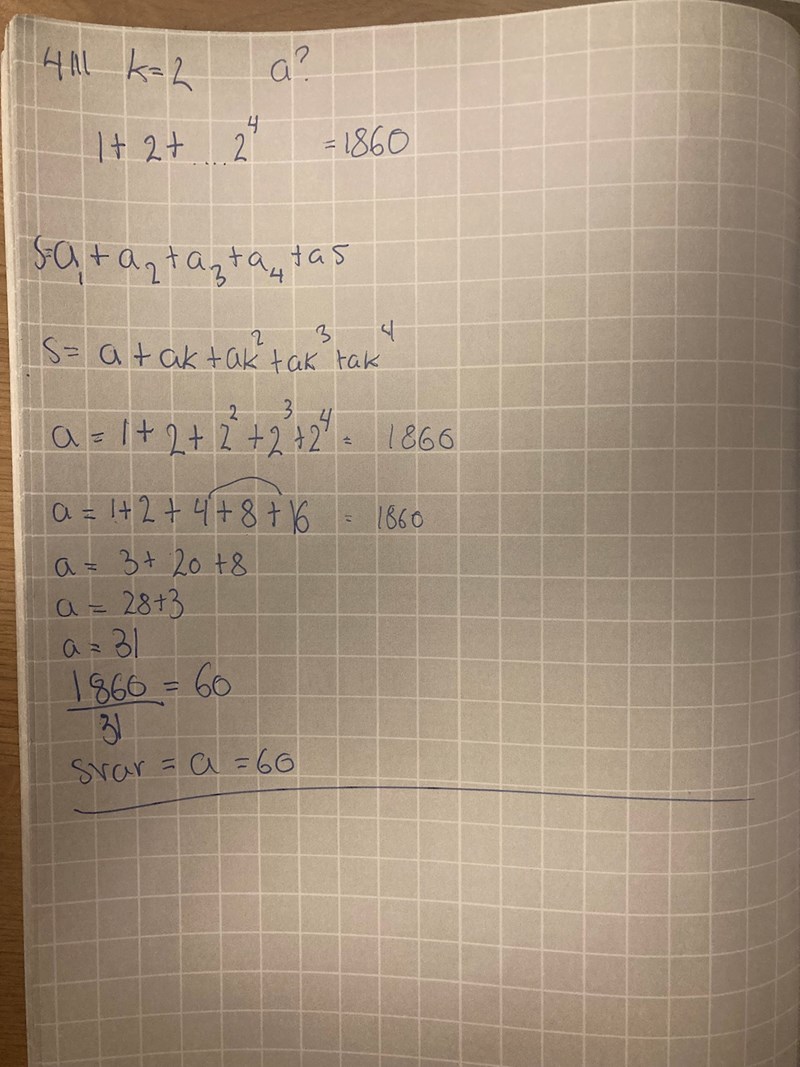 4111 k=2 a?
1+ 2+ .... 2^4 =1860
S=a_1 + a_2 + a_3 + a_4 + a5
S= a + ak + ak^2 + ak^3 + ak^4
a = 1+ 2 + 2^2 + 2^3 + 2^4 = 1860
a = 1+2 + 4 + 8 + 16 = 1860
a = 3+ 20 +8
a = 28+3
a = 31
1860/31 = 60
svar = a = 60